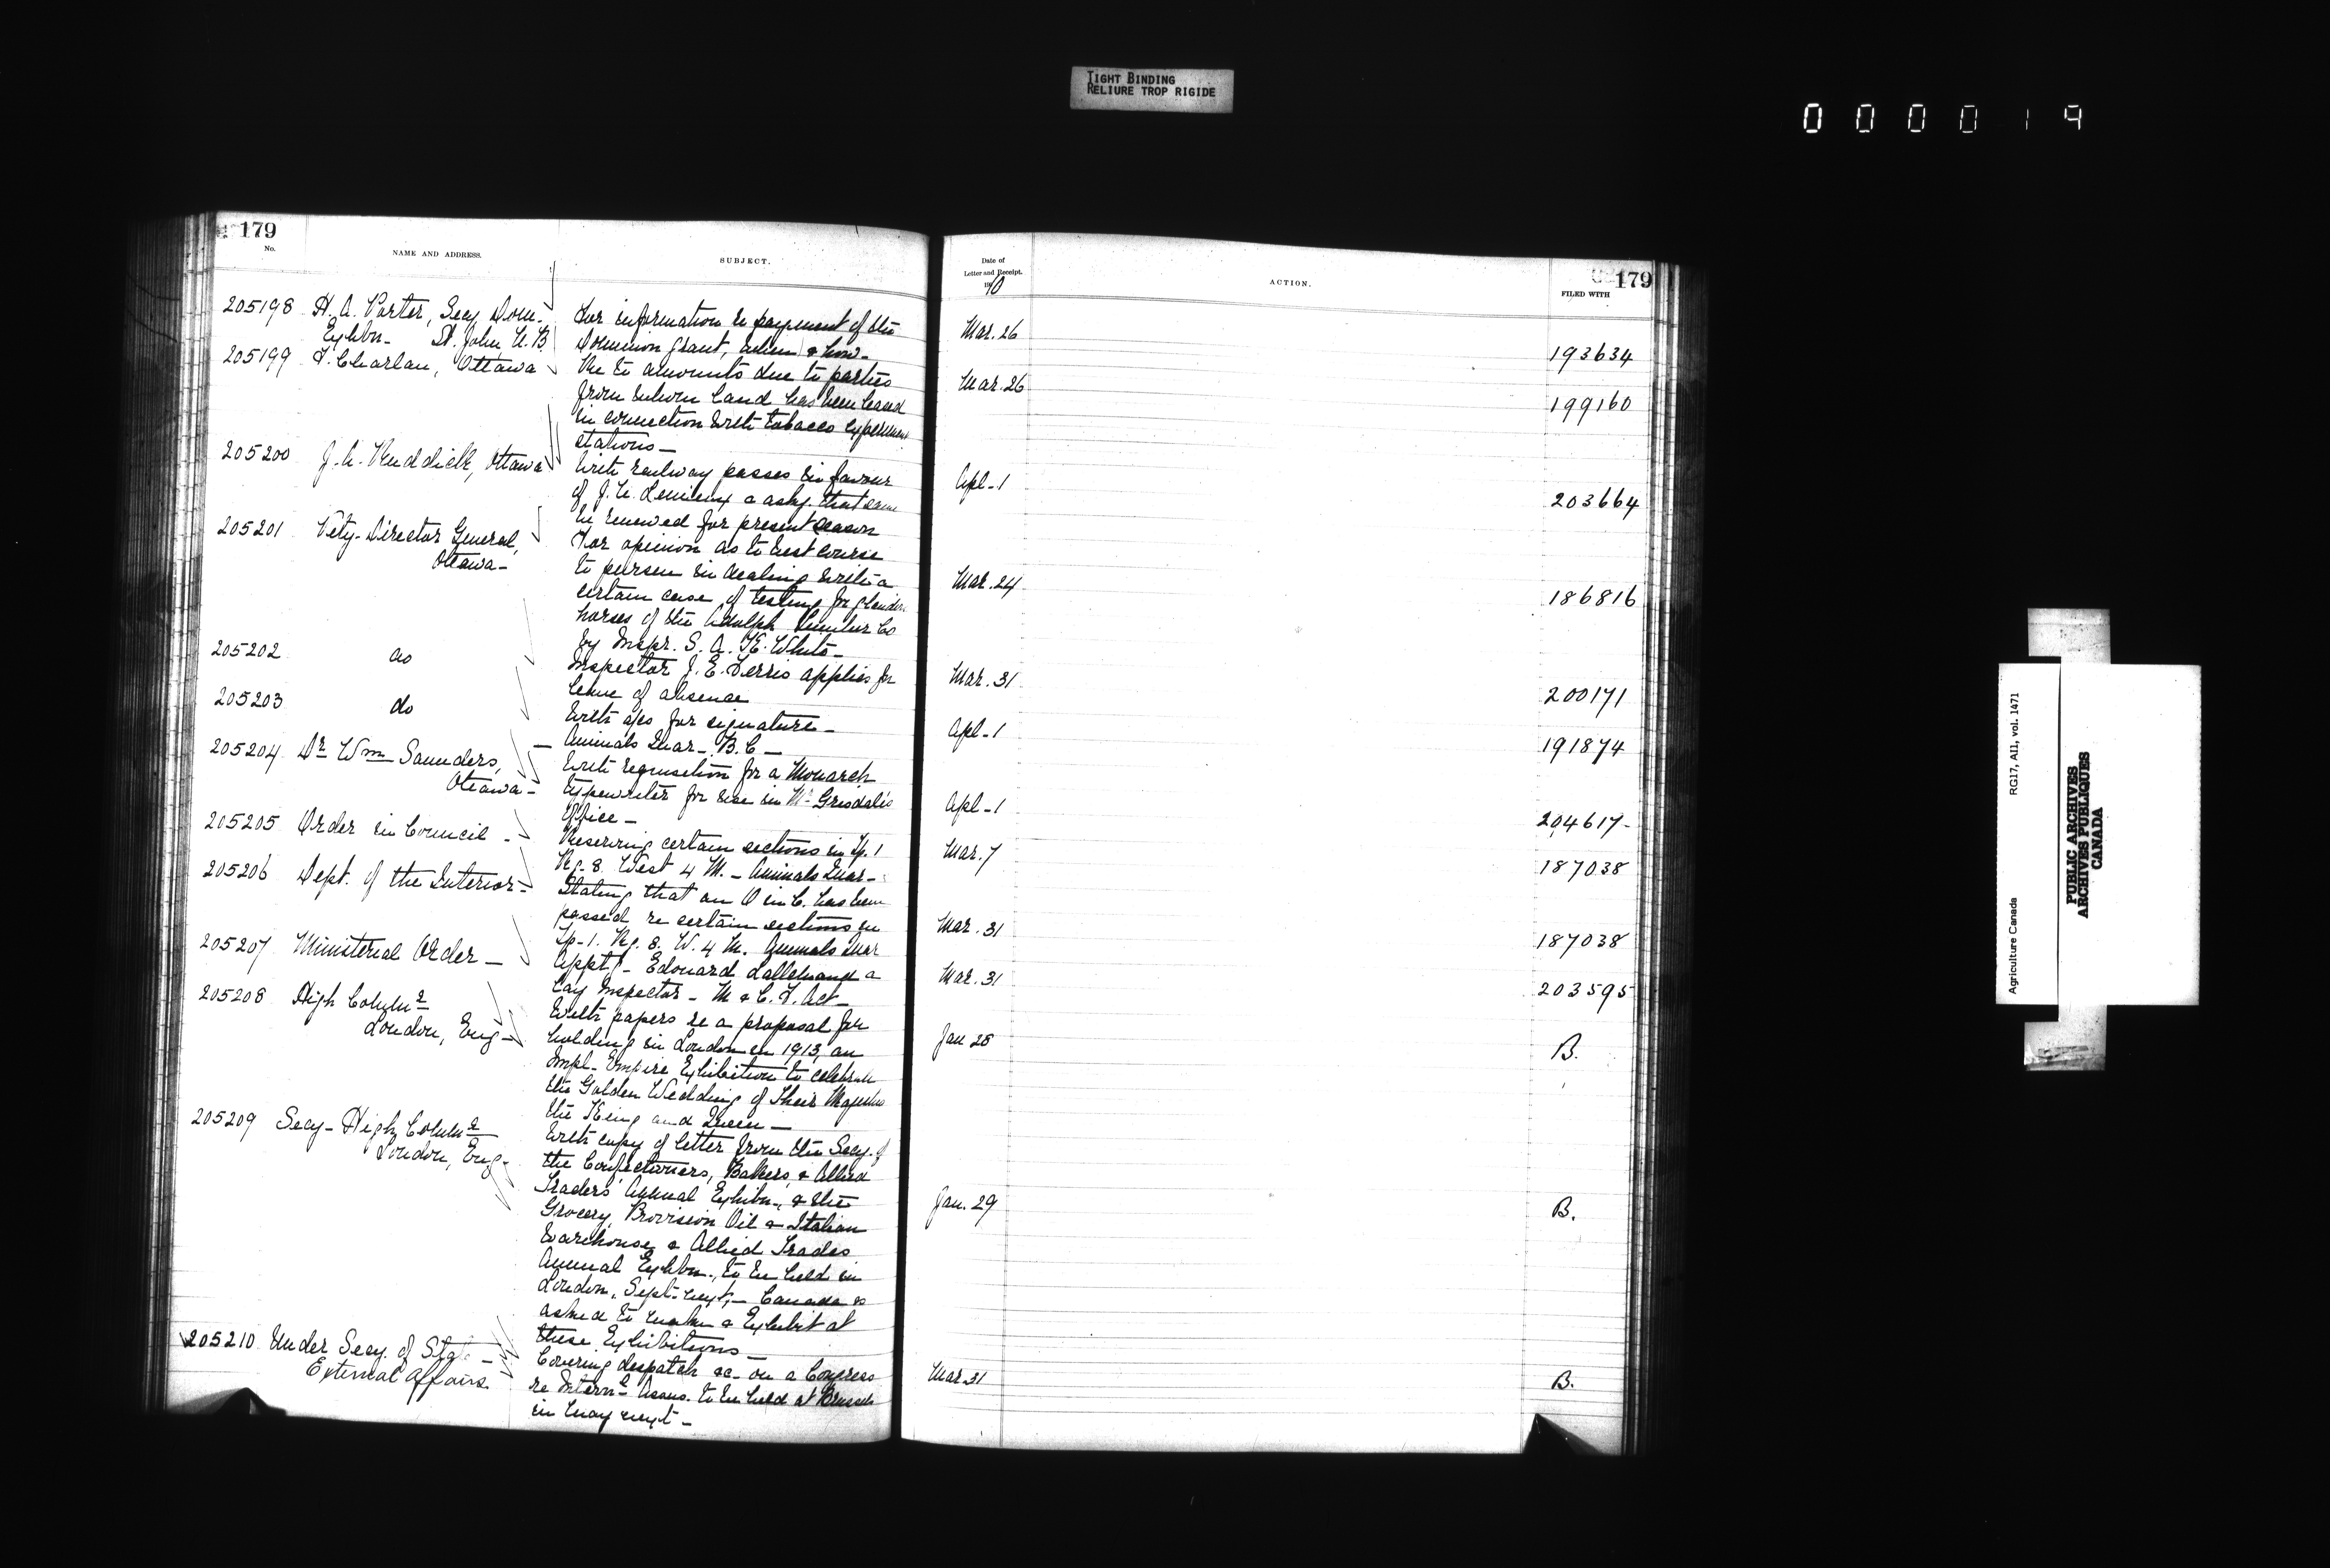 TIGHT BINDING
RELIURE TROP RIGIDE
000019
179
No.
NAME AND ADDRESS.
SUBJECT.
205198 H. A. Porter, Secy Dom. For information re payment of the
Exhbn- St. John N.B. Dominion grant, when & how-
205199 F. Charlan, Ottawa Re to amounts due to parties
from whom land has been leased
in connection with tobacco experiment
stations-
205200 J. A. Ruddick, Ottawa With railway passes in favour
of J. A. Lemieux & asks that same
be renewed for present season
205201 Vety- Director General, For opinion as to best course
Ottawa- to pursue in dealing with a
certain case of testing for glanders
horses of the Adolph Lumber Co
by Inspr. S. A. K. White-
205202 do Inspector J. E. applies for
leave of absence
205203 do With a/cs for signature-
Animals Quar- B.C-
205204 Dr Wm Saunders, With requisition for a Monarch
Ottawa- typewriter for use in Mr Grisdale's
Office-
205205 Order in Council - Reserving certain sections in Tp. 1
Rg. 8. West 4 M. - Animals Quar-
205206 Dept. of the Interior- Stating that an O in C. has been
passed re certain sections in
Tp-1. Rg. 8. W. 4 M. Animals Quar
205207 Ministerial Order - Appt- Edouard a
Lay Inspector - M & C. F. Act-
205208 High Commr With papers re a proposal for
London, Eng- holding in London in 1913, an
Impl- Empire Exhibition to celebrate
the Golden Wedding of Their Majesties
the King and Queen-
205209 Secy- High Commr With copy of letter from the Secy. of
London, Eng- the Confectioners, Bakers, & Allied
Traders' Annual Exhibn-, & the
Grocery, Provision Oil & Italian
Warehouse & Allied Trades
Annual Exhbn., to be held in
London, Sept. next,- Canada is
asked to make a Exhibit at
these Exhibitions-
205210 Under Secy. of State - Covering despatch &c- on a Congress
External Affairs re Internl Assns. to be held at Brussels
in May next-
179
Date of
Letter and Receipt.
1910
ACTION.
FILED WITH
Mar. 26 193634
Mar. 26 199160
Apl-1 203664
Mar. 24 186816
Mar. 31 200171
Apl-1 191874
Apl-1 204617-
Mar. 7 187038
Mar. 31 187038
Mar. 31 203595
Jan 28 B.
Jan. 29 B.
Mar 31 B.
Agriculture Canada RG17, AII, vol. 1471
PUBLIC ARCHIVES
ARCHIVES PUBLIQUES
CANADA